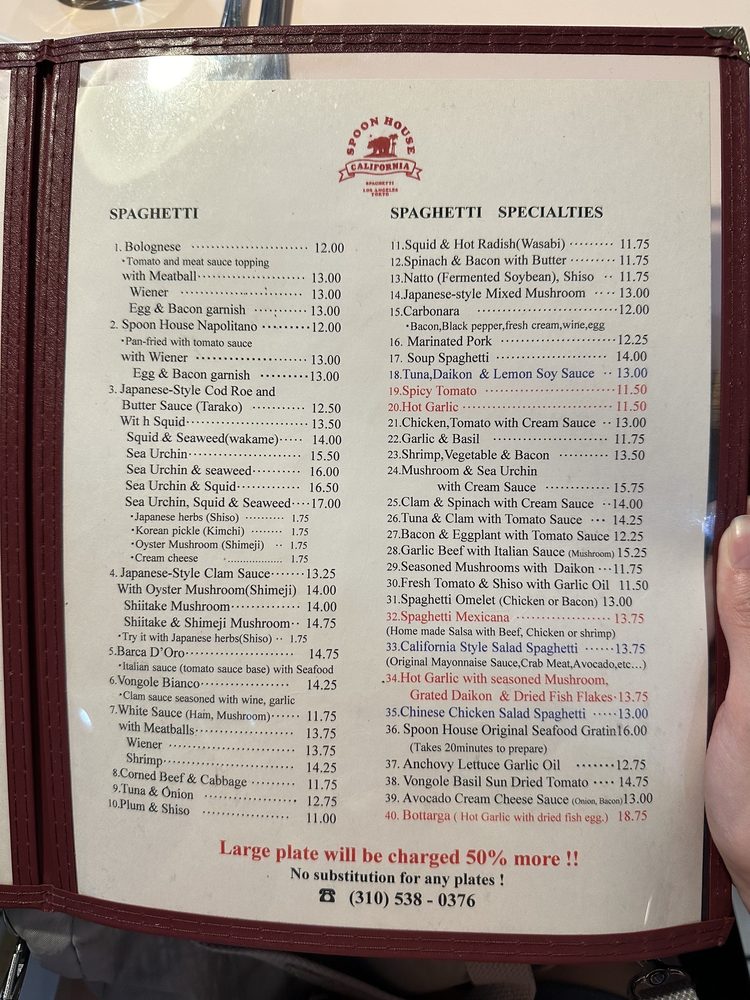 SPOON HOUSE
CALIFORNIA
SPAGHETTI
LOS ANGELES
TOKYO
SPAGHETTI
1. Bolognese ........................ 12.00
•Tomato and meat sauce topping
with Meatball........................ 13.00
Wiener ........................ 13.00
Egg & Bacon garnish ............ 13.00
2. Spoon House Napolitano .........12.00
•Pan-fried with tomato sauce
with Wiener ........................ 13.00
Egg & Bacon garnish ............13.00
3. Japanese-Style Cod Roe and
Butter Sauce (Tarako) ............ 12.50
Wit h Squid........................13.50
Squid & Seaweed(wakame)..... 14.00
Sea Urchin........................ 15.50
Sea Urchin & seaweed............ 16.00
Sea Urchin & Squid............ 16.50
Sea Urchin, Squid & Seaweed....17.00
•Japanese herbs (Shiso) .......... 1.75
•Korean pickle (Kimchi) ........ 1.75
•Oyster Mushroom (Shimeji) .. 1.75
•Cream cheese .................. 1.75
4. Japanese-Style Clam Sauce.......13.25
With Oyster Mushroom(Shimeji) 14.00
Shiitake Mushroom............ 14.00
Shiitake & Shimeji Mushroom.. 14.75
•Try it with Japanese herbs(Shiso) .. 1.75
5.Barca D'Oro........................ 14.75
•Italian sauce (tomato sauce base) with Seafood
6.Vongole Bianco..................... 14.25
•Clam sauce seasoned with wine, garlic
7.White Sauce (Ham, Mushroom)....... 11.75
with Meatballs..................... 13.75
Wiener ........................ 13.75
Shrimp........................ 14.25
8.Corned Beef & Cabbage ......... 11.75
9.Tuna & Onion ..................... 12.75
10.Plum & Shiso .................. 11.00
SPAGHETTI SPECIALTIES
11.Squid & Hot Radish(Wasabi) ......... 11.75
12.Spinach & Bacon with Butter ........ 11.75
13.Natto (Fermented Soybean), Shiso .. 11.75
14.Japanese-style Mixed Mushroom .... 13.00
15.Carbonara ........................12.00
•Bacon,Black pepper,fresh cream,wine,egg
16. Marinated Pork ........................12.25
17. Soup Spaghetti ........................ 14.00
18.Tuna,Daikon & Lemon Soy Sauce .. 13.00
19.Spicy Tomato ........................11.50
20.Hot Garlic ........................11.50
21.Chicken,Tomato with Cream Sauce .. 13.00
22.Garlic & Basil ........................ 11.75
23.Shrimp,Vegetable & Bacon ............ 13.50
24.Mushroom & Sea Urchin
with Cream Sauce ............... 15.75
25.Clam & Spinach with Cream Sauce ..14.00
26.Tuna & Clam with Tomato Sauce ... 14.25
27.Bacon & Eggplant with Tomato Sauce 12.25
28.Garlic Beef with Italian Sauce (Mushroom) 15.25
29.Seasoned Mushrooms with Daikon ...11.75
30.Fresh Tomato & Shiso with Garlic Oil 11.50
31.Spaghetti Omelet (Chicken or Bacon) 13.00
32.Spaghetti Mexicana ..................... 13.75
(Home made Salsa with Beef, Chicken or shrimp)
33.California Style Salad Spaghetti ......13.75
(Original Mayonnaise Sauce,Crab Meat,Avocado,etc...)
34.Hot Garlic with seasoned Mushroom,
Grated Daikon & Dried Fish Flakes.13.75
35.Chinese Chicken Salad Spaghetti .....13.00
36.Spoon House Original Seafood Gratin16.00
(Takes 20minutes to prepare)
37. Anchovy Lettuce Garlic Oil .......12.75
38. Vongole Basil Sun Dried Tomato .... 14.75
39. Avocado Cream Cheese Sauce (Onion, Bacon)13.00
40. Bottarga ( Hot Garlic with dried fish egg.) 18.75
Large plate will be charged 50% more !!
No substitution for any plates !
☎ (310) 538 - 0376